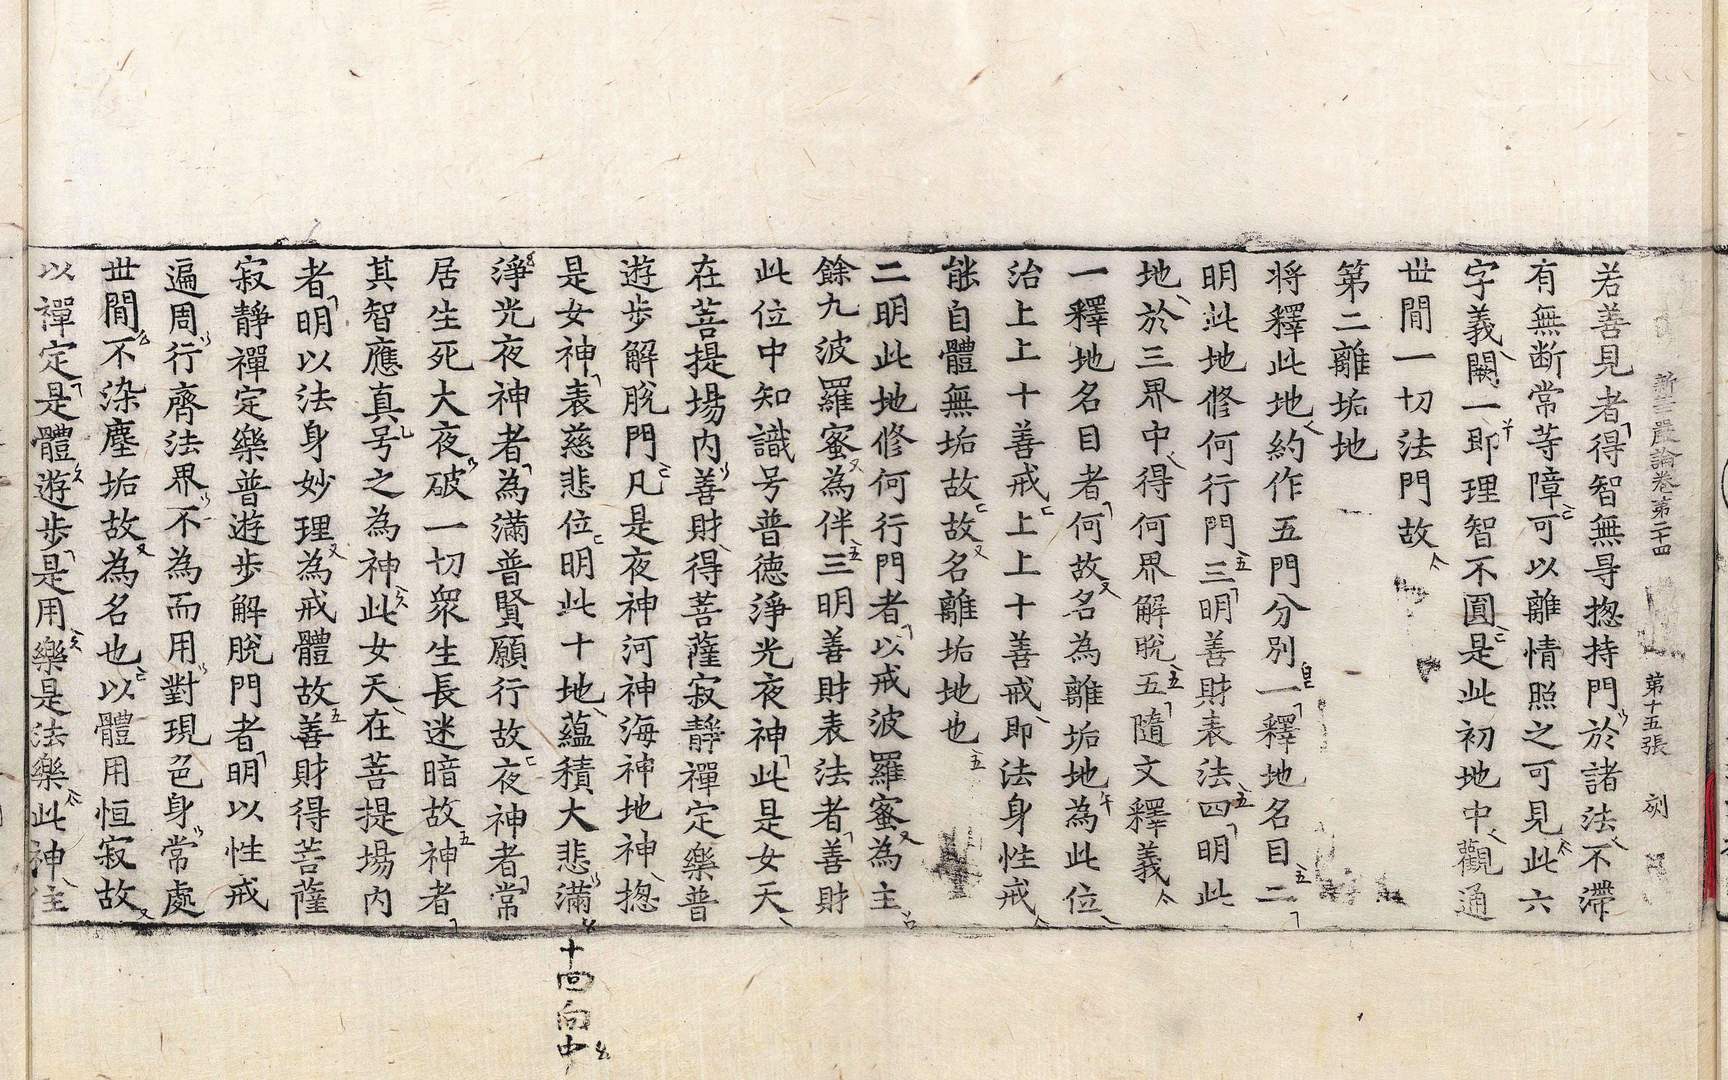 新華嚴論卷第二十四 第十五張 刻
若善見者得智無㝵揔持門於諸法不滯
有無断常等障可以離情照之可見此六
字義闕一即理智不圓是此初地中觀通
世間一切法門故
第二離垢地
将釋此地約作五門分別一釋地名目二
明此地修何行門三明善財表法四明此
地於三界中得何界解脫五隨文釋義
一釋地名目者何故名為離垢地為此位
治上上十善戒上上十善戒即法身性戒
能自體無垢故故名離垢地也
二明此地修何行門者以戒波羅蜜為主
餘九波羅蜜為伴三明善財表法者善財
此位中知識号普德淨光夜神此是女天
在菩提場内善財得菩薩寂靜禪定樂普
遊步解脫門凡是夜神河神海神地神揔
是女神表慈悲位明此十地蘊積大悲滿
十回向中
淨光夜神者為滿普賢願行故夜神者常
居生死大夜破一切衆生長迷暗故神者
其智應真号之為神此女天在菩提場内
者明以法身妙理為戒體故善財得菩薩
寂靜禪定樂普遊步解脫門者明以性戒
遍周行齊法界不為而用對現色身常處
世間不染塵垢故為名也以體用恒寂故
以禪定是體遊步是用樂是法樂此神住